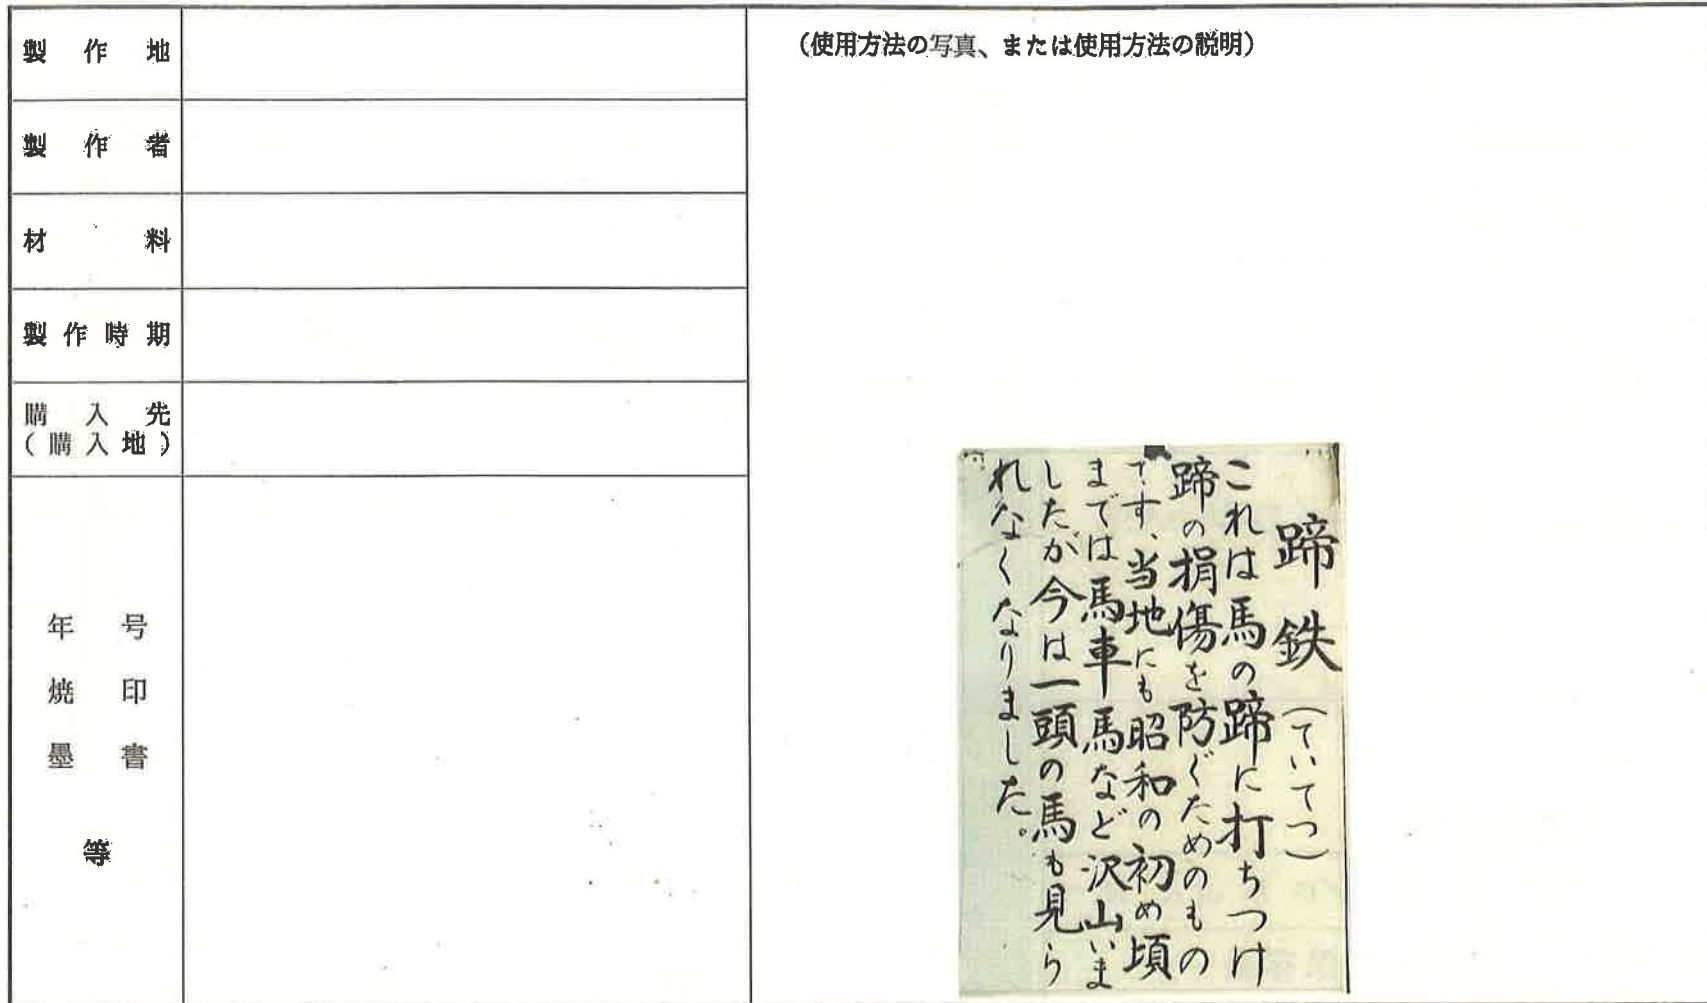 製作地
製作者
材料
製作時期
購入先
(購入地)
年号
焼印
墨書
等
(使用方法の写真、または使用方法の説明)
蹄鉄(ていてつ)
これは馬の蹄に打ちつけ
蹄の損傷を防ぐためのもの
です、当地にも昭和の初め頃
までは馬車馬など沢山いま
したが今は一頭の馬も見ら
れなくなりました。